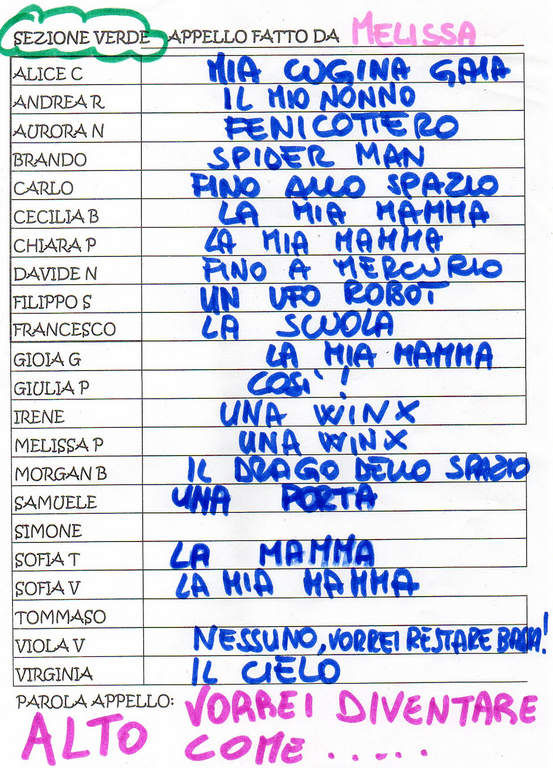 SEZIONE VERDE APPELLO FATTO DA MELISSA
ALICE C MIA CUGINA GAIA
ANDREA R IL MIO NONNO
AURORA N FENICOTTERO
BRANDO SPIDER MAN
CARLO FINO ALLO SPAZIO
CECILIA B LA MIA MAMMA
CHIARA P LA MIA MAMMA
DAVIDE N FINO A MERCURIO
FILIPPO S UN UFO ROBOT
FRANCESCO LA SCUOLA
GIOIA G LA MIA MAMMA
GIULIA P COSI'!
IRENE UNA WINX
MELISSA P UNA WINX
MORGAN B IL DRAGO DELLO SPAZIO
SAMUELE UNA PORTA
SIMONE
SOFIA T LA MAMMA
SOFIA V LA MIA MAMMA
TOMMASO
VIOLA V NESSUNO, VORREI RESTARE BASSA!
VIRGINIA IL CIELO
PAROLA APPELLO: VORREI DIVENTARE
ALTO COME.....